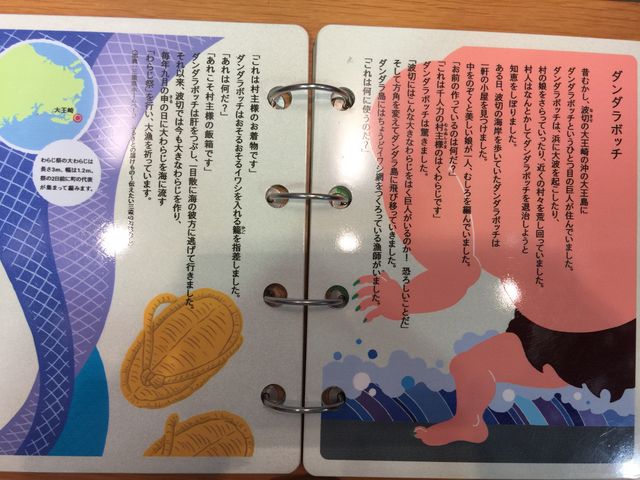 ダンダラボッチ
昔むかし、波切の大王崎の沖の大王島に
ダンダラボッチというひとつ目の巨人が住んでいました。
ダンダラボッチは、浜に大波を起こしたり、
村の娘をさらっていったり、近くの村々を荒し回っていました。
村人はなんとかしてダンダラボッチを退治しようと
知恵をしぼりました。
ある日、波切の海岸を歩いていたダンダラボッチは
一軒の小屋を見つけました。
中をのぞくと美しい娘が一人、むしろを編んでいました。
「お前の作っているのは何だ?」
「これは千人力の村主様のはくわらじです」
ダンダラボッチは驚きました。
「波切にはこんな大きなわらじをはく巨人がいるのか! 恐ろしいことだ」
そして方角を変えてダンダラ島に飛び移っていきました。
ダンダラ島にはちょうどイワシ網をつくろっている漁師がいました。
「これは何に使うのだ?」
「これは村主様のお着物です」
ダンダラボッチはおそるおそるイワシを入れる籠を指差しました。
「あれは何だ?」
「あれこそ村主様の飯箱です」
ダンダラボッチは肝をつぶし、一目散に海の彼方に逃げて行きました。
それ以来、波切では今も大きなわらじを作り、
毎年九月の申の日に大わらじを海に流す
「わらじ祭」を行い、大漁を祈っています。
大王崎
わらじ祭の大わらじは
長さ3m、幅は1.2m。
祭の2日前に町の代表
が集まって編みます。